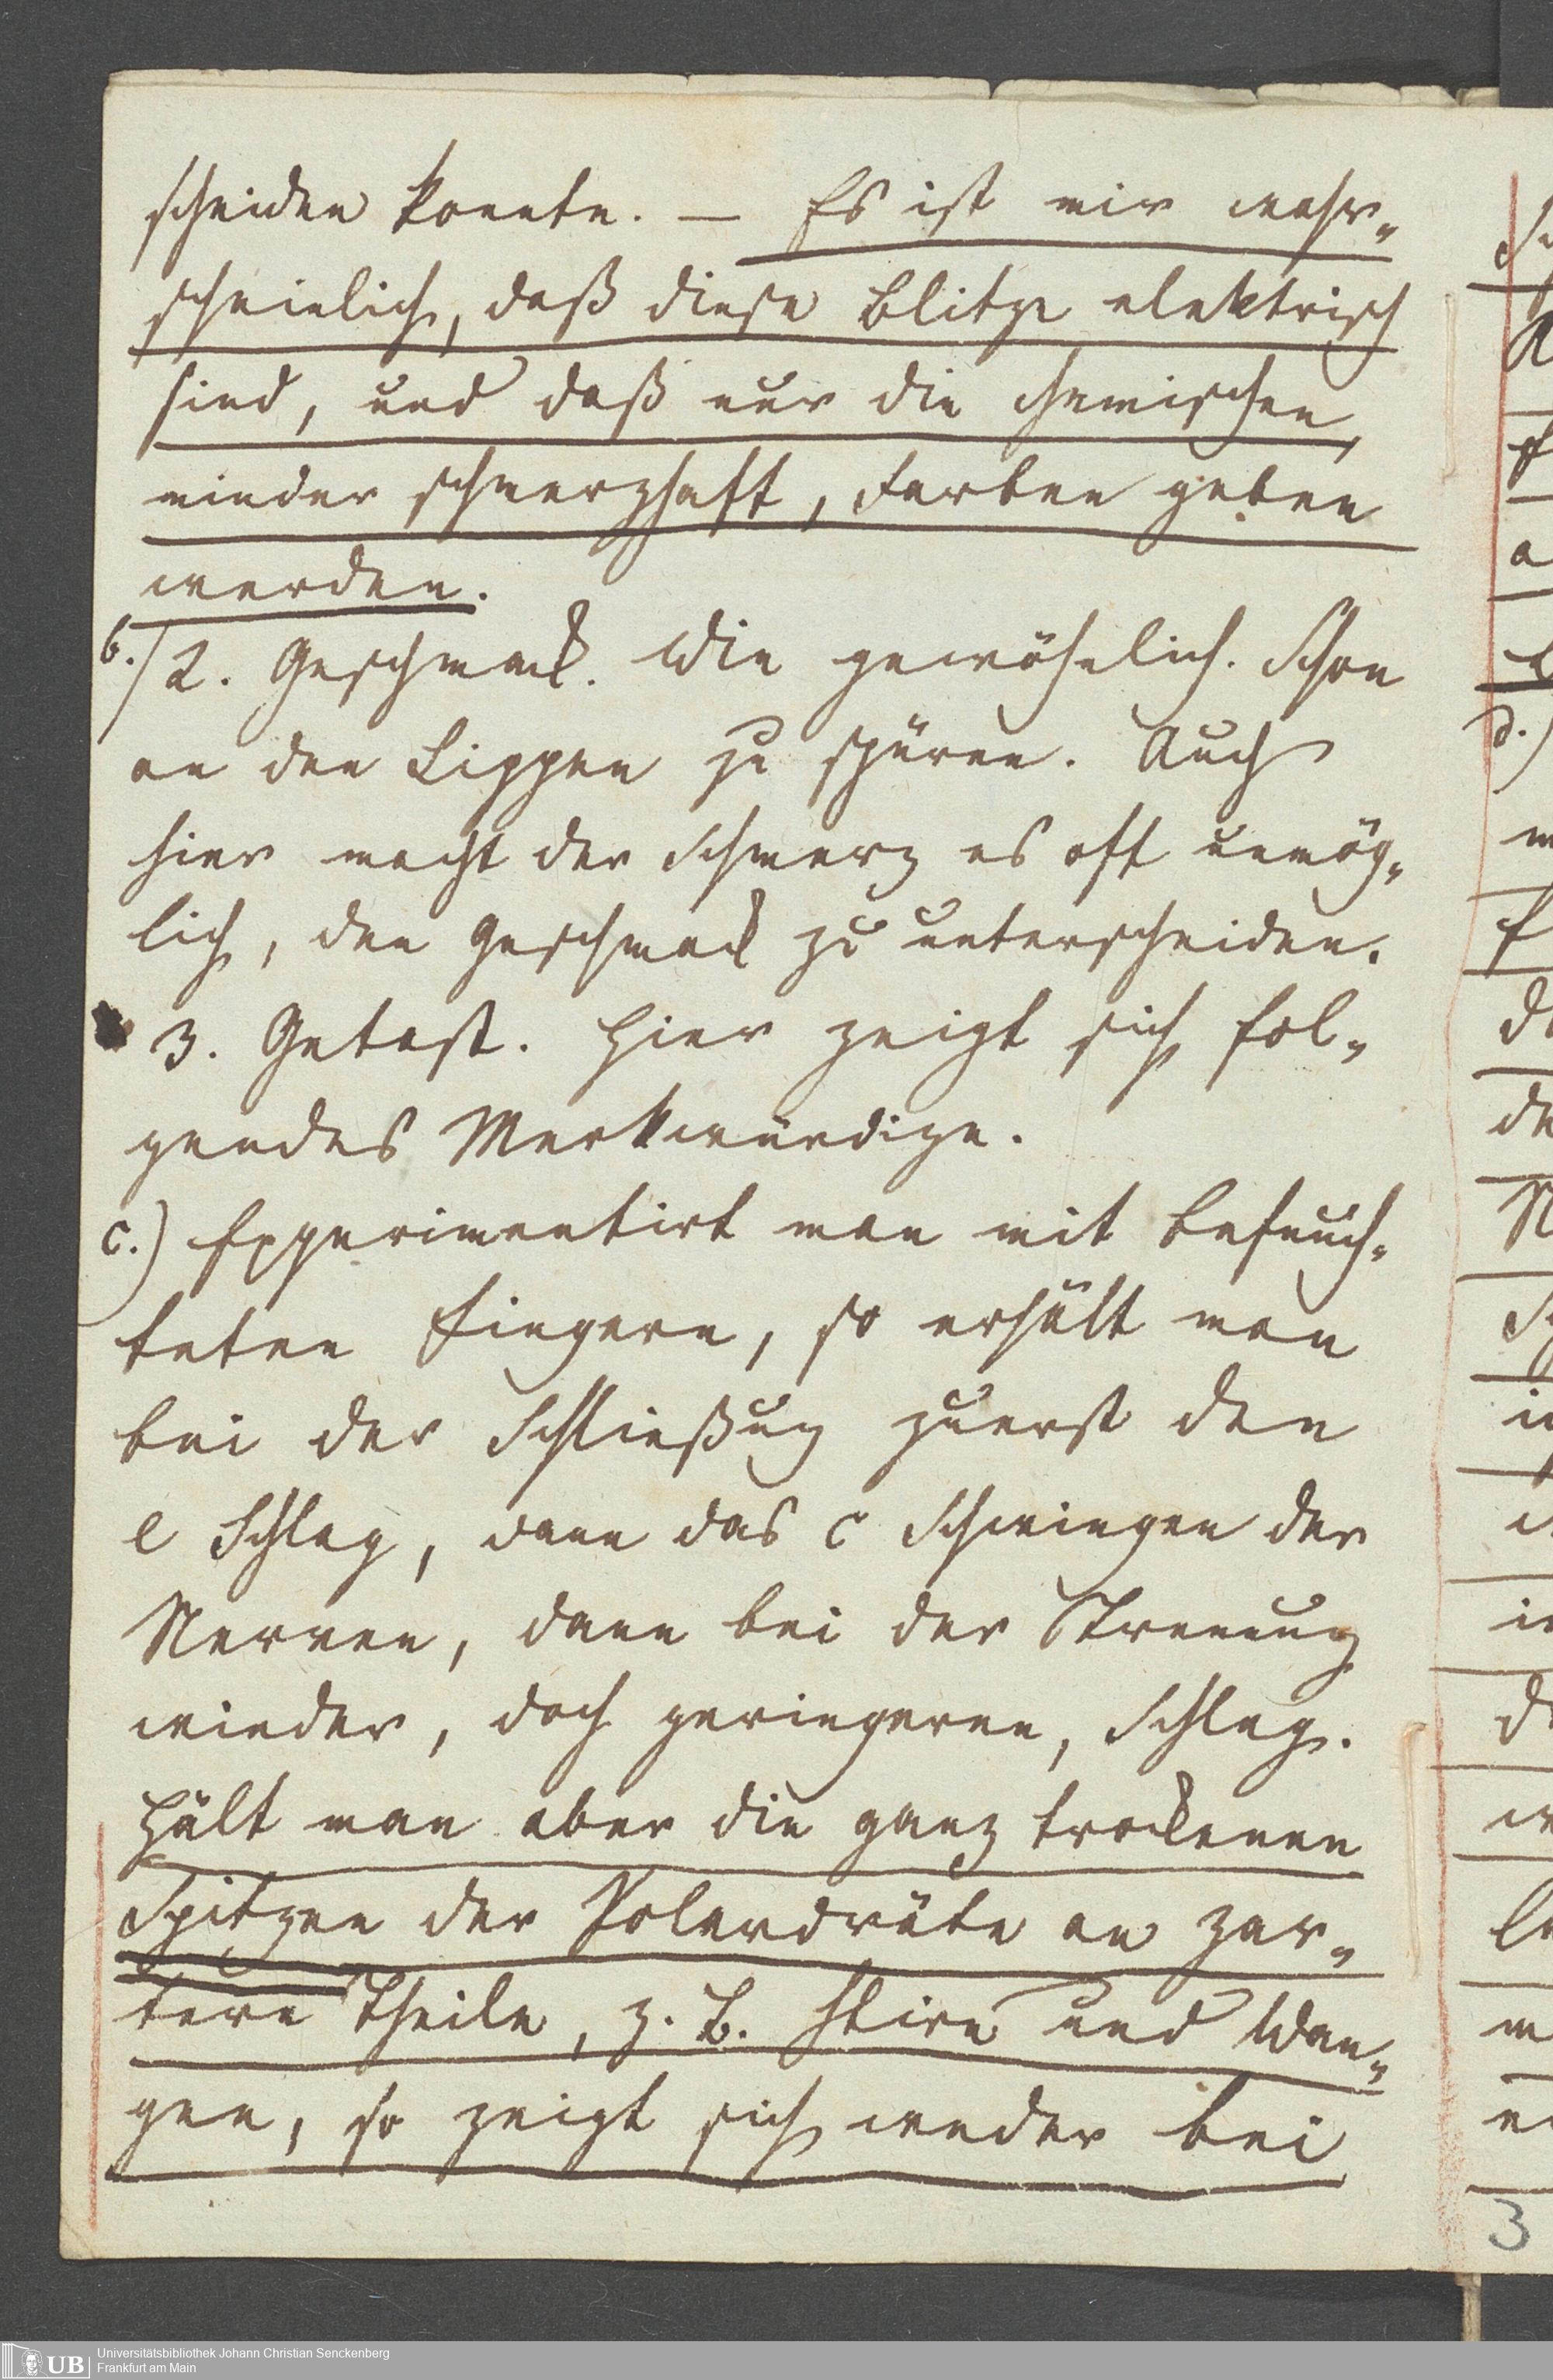 scheiden konnte. — Es ist mir wahr-
scheinlich, daß diese Blitze elektrisch
sind, und daß nur die chemischen,
minder schmerzhaft, Farben geben
werden.
b.) 2. Geschmack. Wie gewöhnlich. Schon
an den Lippen zu spüren. Auch
hier macht der Schmerz es oft unmög-
lich, den Geschmack zu unterscheiden.
3. Getast. Hier zeigt sich fol-
gendes Merkwürdige.
c.) Experimentirt man mit befeuch-
teten Fingern, so erhält man
bei der Schließung zuerst den
e Schlag, dann das c Schwingen der
Nerven, dann bei der Trennung
wieder, doch geringeren, Schlag.
Hält man aber die ganz trockenen
Spitzen der Polardräte an zar-
tere Theile, z. B. Stirn und Wan-
gen, so zeigt sich weder bei
3
UB
Universitätsbibliothek Johann Christian Senckenberg
Frankfurt am Main